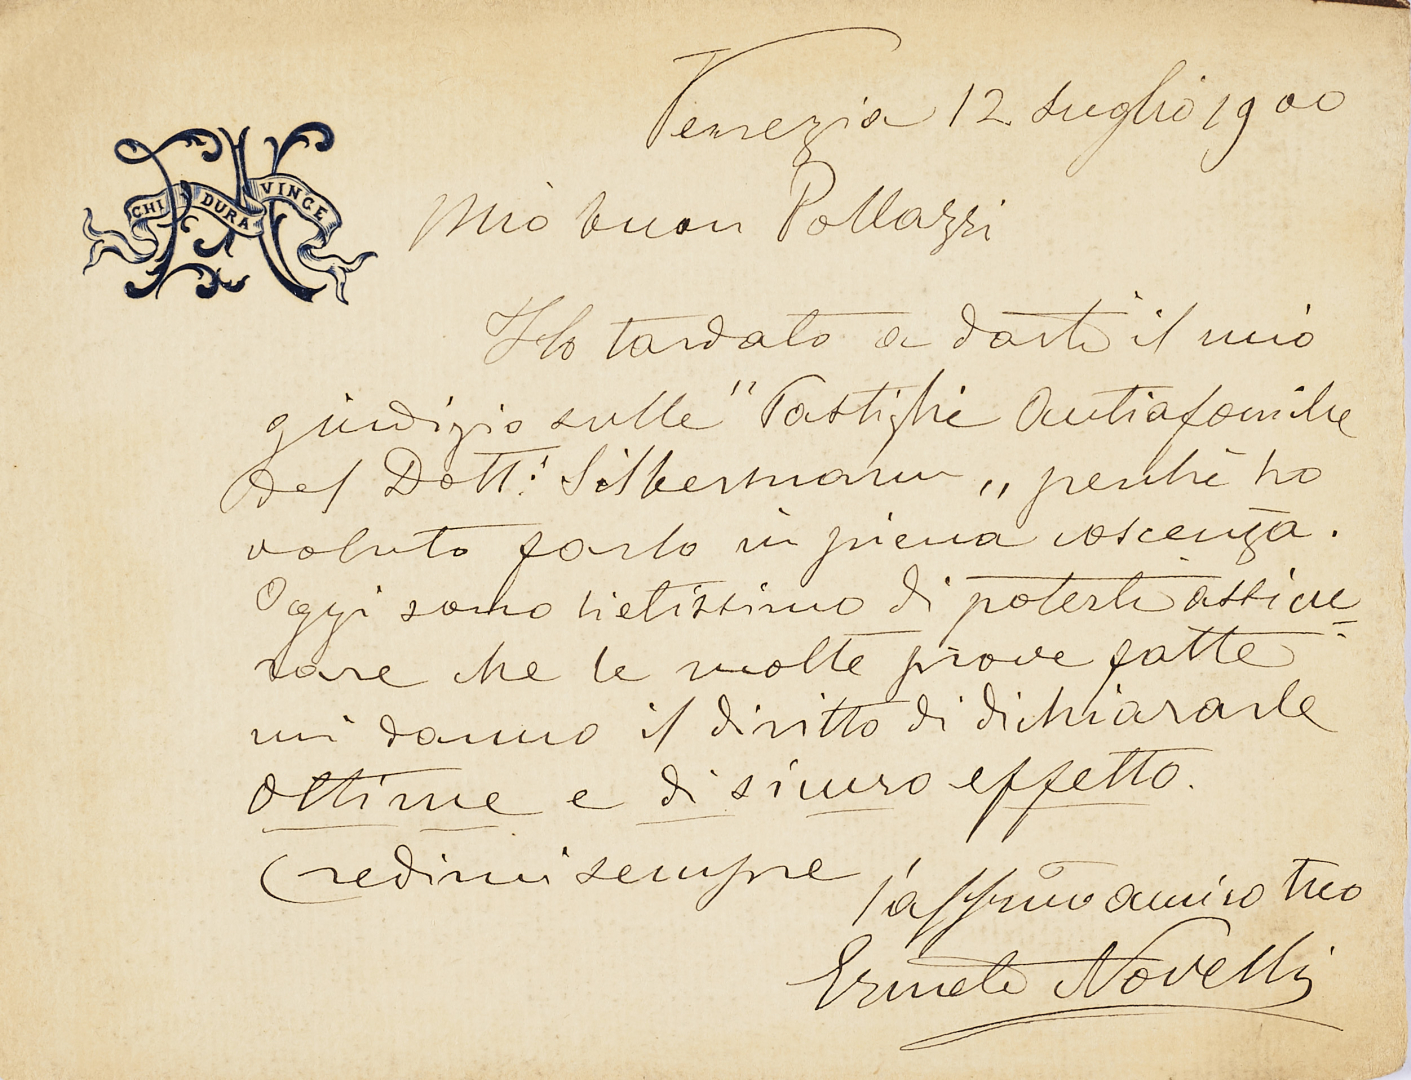 Venezia 12. Luglio 1900
CHI DURA VINCE
Mio buon Pollazzi
Ho tardato a darti il mio
giudizio sulle "Pastighe Antiafoniche
del Dott: Silbermann „ perchè ho
voluto farlo in piena coscenza.
Oggi sono lietissimo di poterti assicu=
rare che le molte prove fatte
mi danno il diritto di dichiararle
ottime e di sicuro effetto.
Credimi sempre
l'affmo amico tuo
Ermete Novelli